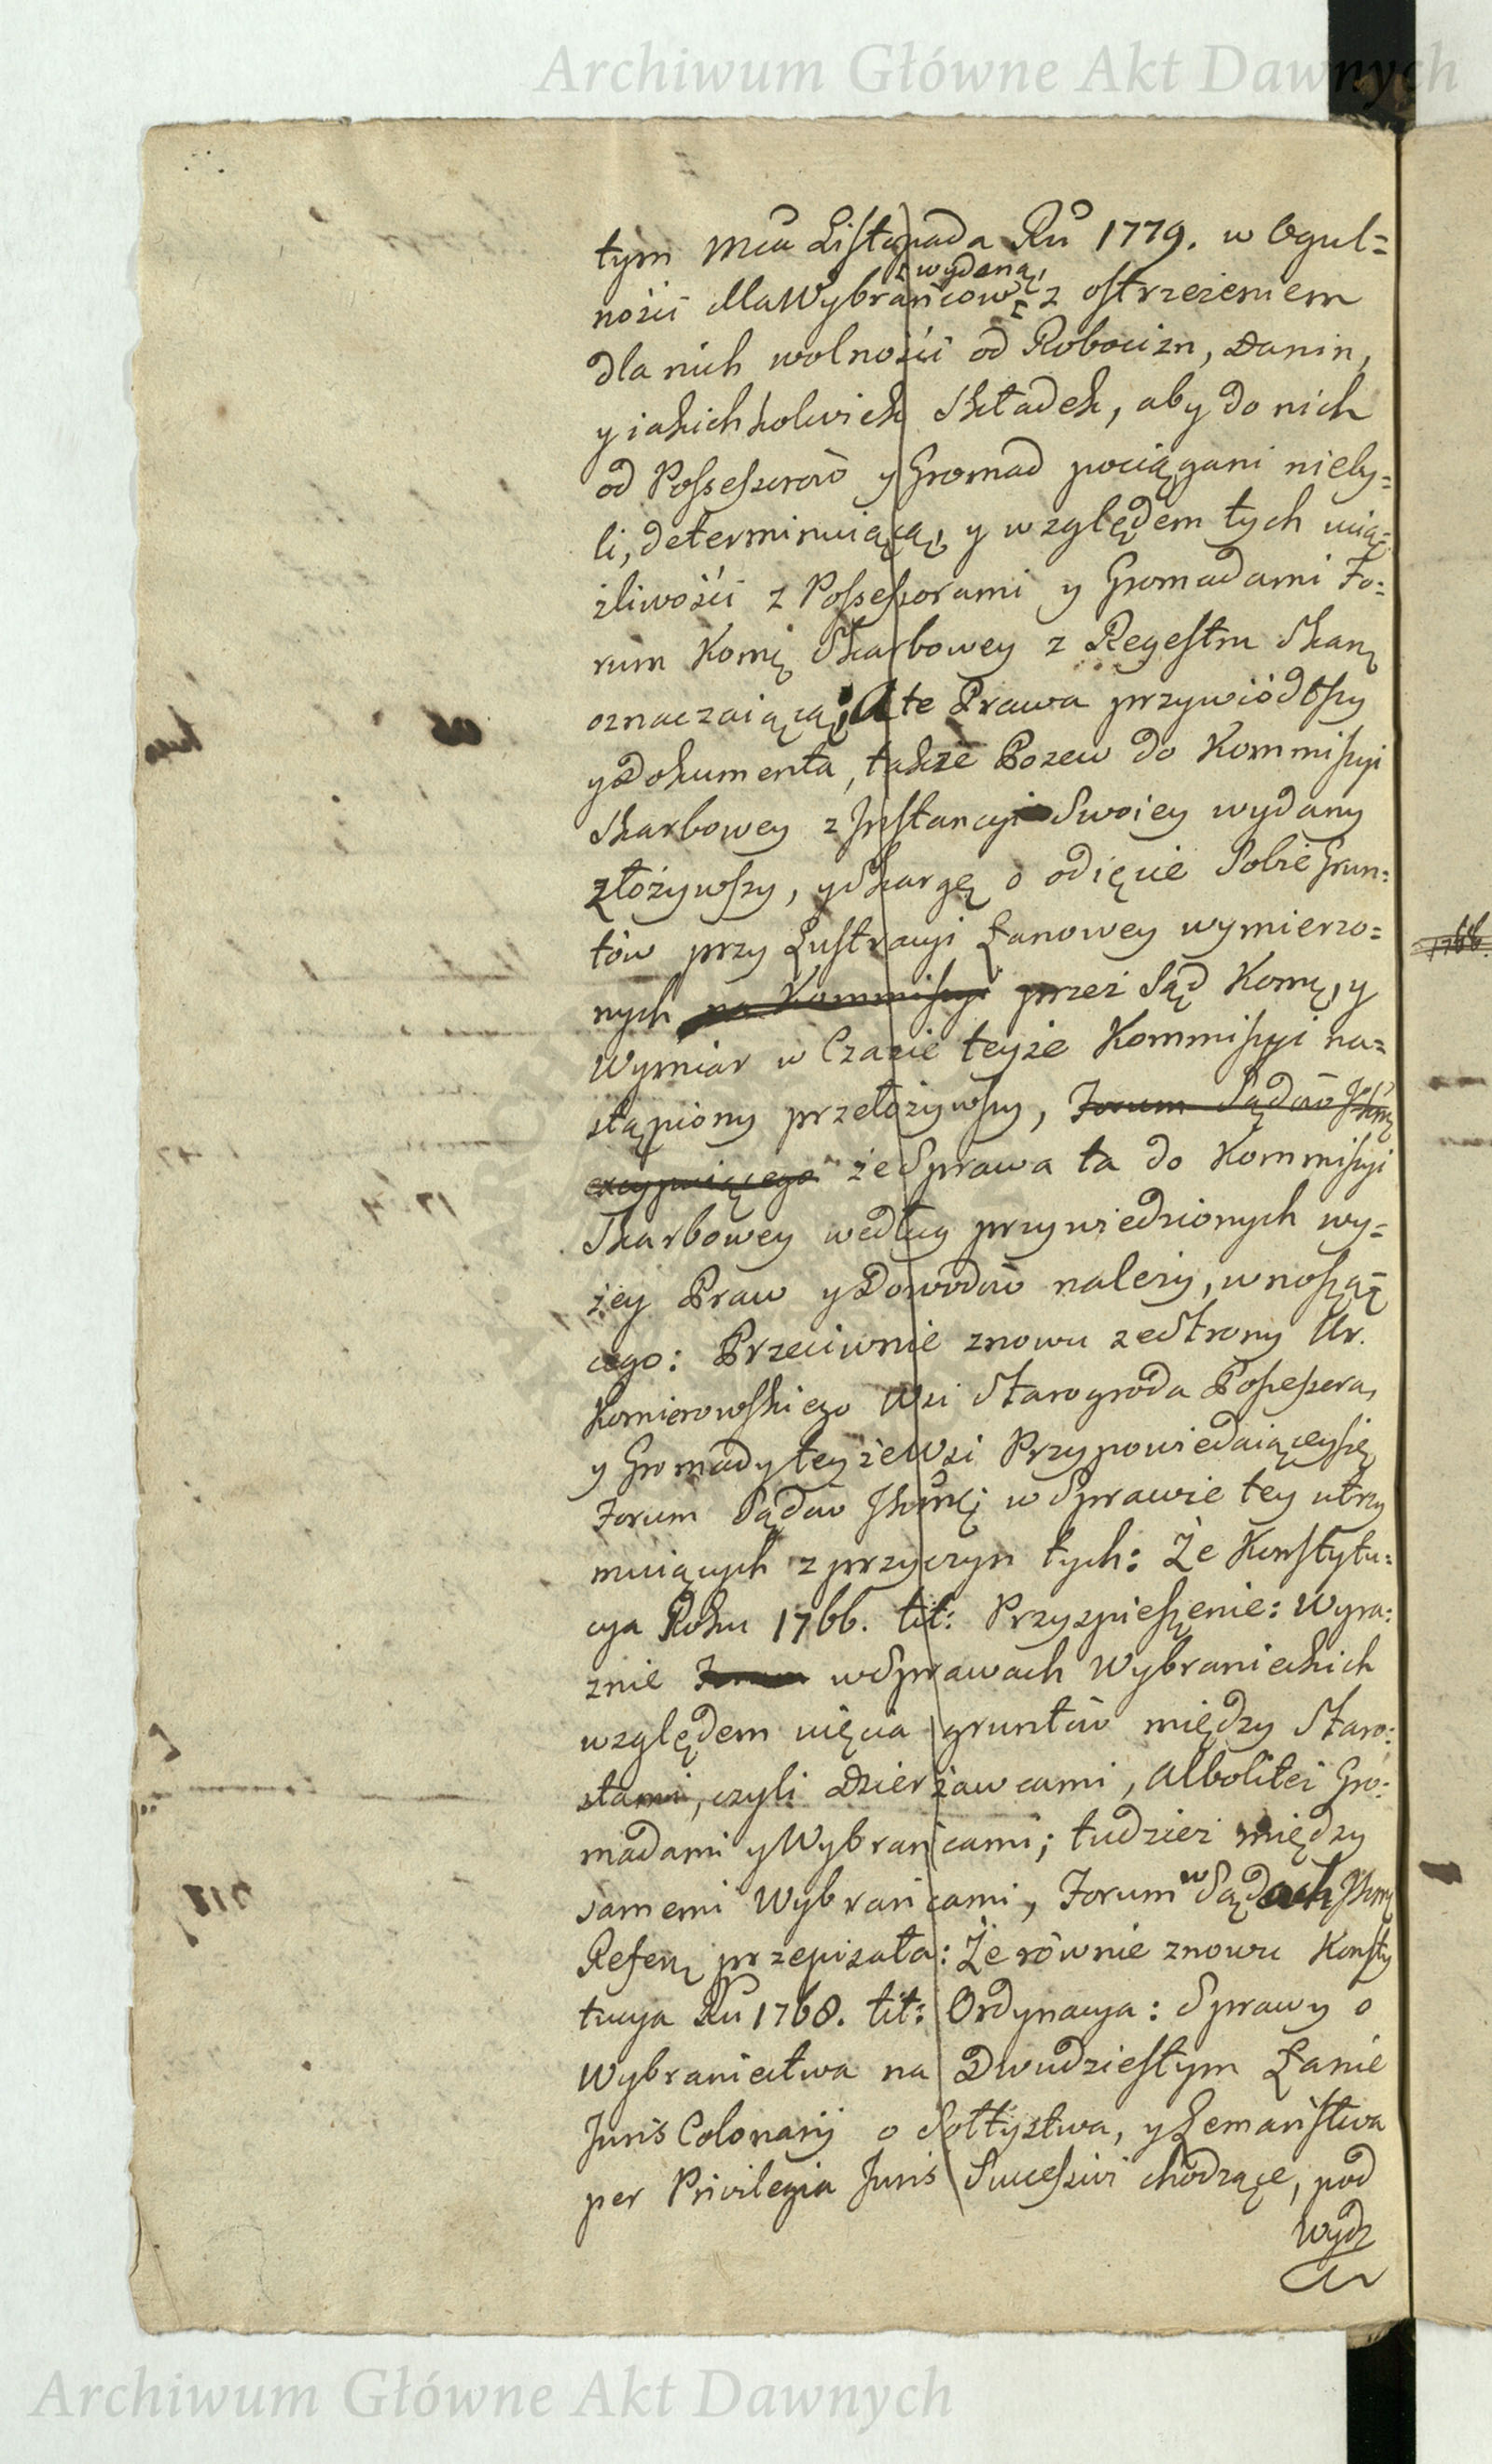 Archiwum Główne Akt Dawnych
tym Mca Listopada Ru 1779. w Ogul=
ności dla Wybrańców z wydaną, z ostrzeżeniem
dla nich wolności od Robocizn, Danin,
y iakichkolwiek Składek, aby do nich
od Possessorów y Gromad pociągani nieby=
li, determinuiącą, y względem tych ucią=
żliwości z Possessorami y Gromadami Fo=
rum Komi Skarbowey z Regestru Skarg
oznaczaiącą; A te Prawa przywiódłszy
y Dokumenta, także Pozew do Kommissyi
Skarbowey z Instancyi Swoiey wydany
złożywszy, y Skargę o odięcie Sobie Grun=
tów przy Lustracyi Łanowey wymierzo=
nych na Kommissyi przez Sąd Komi, y
Wymiar w Czasie teyże Kommissyi na=
stąpiony przełożywszy, Forum Sądów
excypuiącego że Sprawa ta do Kommissyi
Skarbowey według przywiedzionych wy=
żey Praw y Dowodów należy, wnoszą=
cego: Przeciwnie znowu ze Strony Ur.
Komierowskiego Wsi Starogroda Possessora,
y Gromady teyże Wsi Przypowiedaiącey się
Forum Sądów w Sprawie tey utrzy
muiących z przyczyn tych: Że Konstytu=
cya Roku 1766. tit: Przyspieszenie: Wyra=
znie Forum w Sprawach Wybranieckich
względem uięcia gruntów między Staro=
stami, czyli Dzierżawcami, Albo też Gro=
madami y Wybrańcami; tudzież między
samemi Wybrańcami, Forum w Sądach
Refer przepisała: Że równie znowu Konsty
tucya Ru 1768. tit: Ordynacya: Sprawy o
Wybraniectwa na Dwudziestym Łanie
Juris Colonarij o Sołtystwa, y Lemaństwa
per Privilegia Juris Successivi chodzące, pod
Wydz
1766.
Archiwum Główne Akt Dawnych